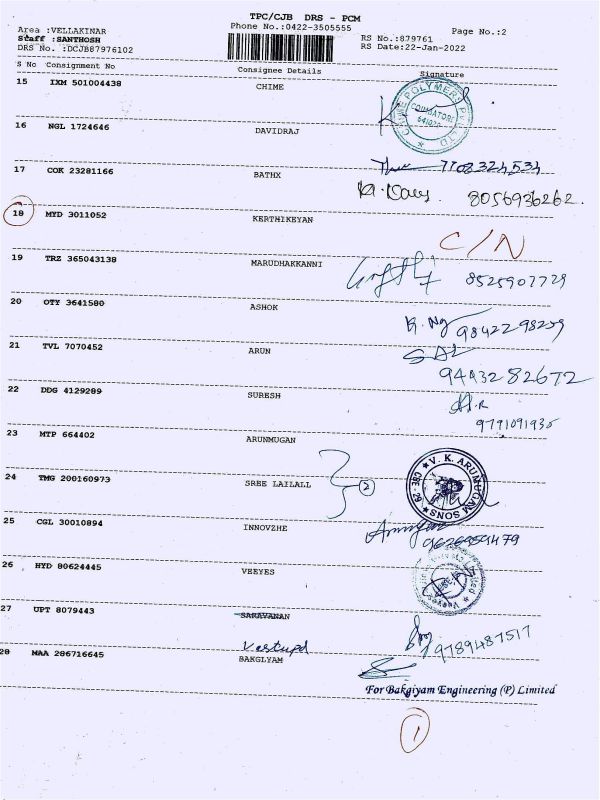 TPC/CJB DRS - PCM
Area :VELLAKINAR Phone No.:0422-3505555 Page No.:2
Staff :SANTHOSH RS No.:879761
DRS No. :DCJB87976102 RS Date:22-Jan-2022
S No Consignment No Consignee Details Signature
15 IXM 501004438 CHIME
CHIME POLYMERS PVT LTD
COIMBATORE
16 NGL 1724646 DAVIDRAJ
7708324534
17 COK 23281166 BATHX 8056936262.
18 MYD 3011052 KERTHIKEYAN C/N
19 TRZ 365043138 MARUDHAKKANNI 8525907729
20 OTY 3641580 ASHOK 9842298259
21 TVL 7070452 ARUN 9443282672
22 DDG 4129289 SURESH 9791091935
23 MTP 664402 ARUNMUGAN
V. K. ARUMUGAM SONS
24 TMG 200160973 SREE LAILALL 2
25 CGL 30010894 INNOVZHE 9626959479
26 HYD 80624445 VEEYES
27 UPT 8079443 SARAVANAN 9789487517
28 MAA 286716645 BAKGLYAM
For Bakgiyam Engineering (P) Limited
1